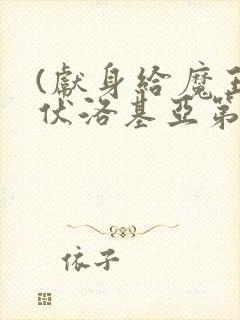 (獻身給魔王
伏洛基亞第
依子